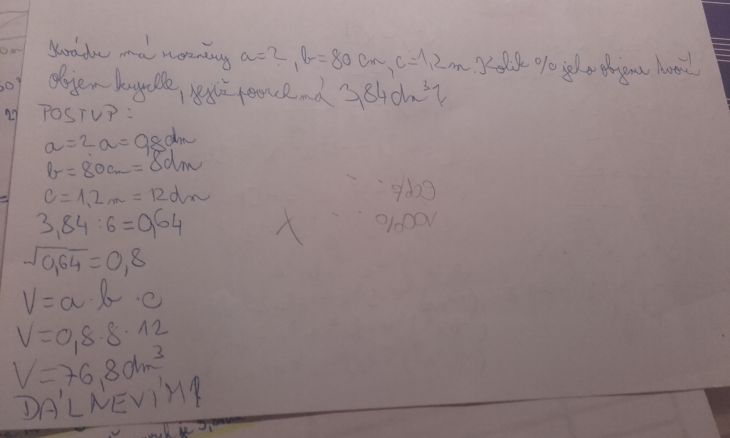 Kvádr má rozměry a=2, b=80 cm, c=1,2 m. Kolik % jeho objemu tvoří
objem krychle, jejíž povrch má 3,84 dm³?
POSTUP:
a=2 a=0,8dm
b=80cm=8dm
c=1,2m=12dm
3,84:6=0,64
√0,64=0,8
V=a·b·c
V=0,8·8·12
V=76,8dm³
DÁL NEVÍM!
x
100%